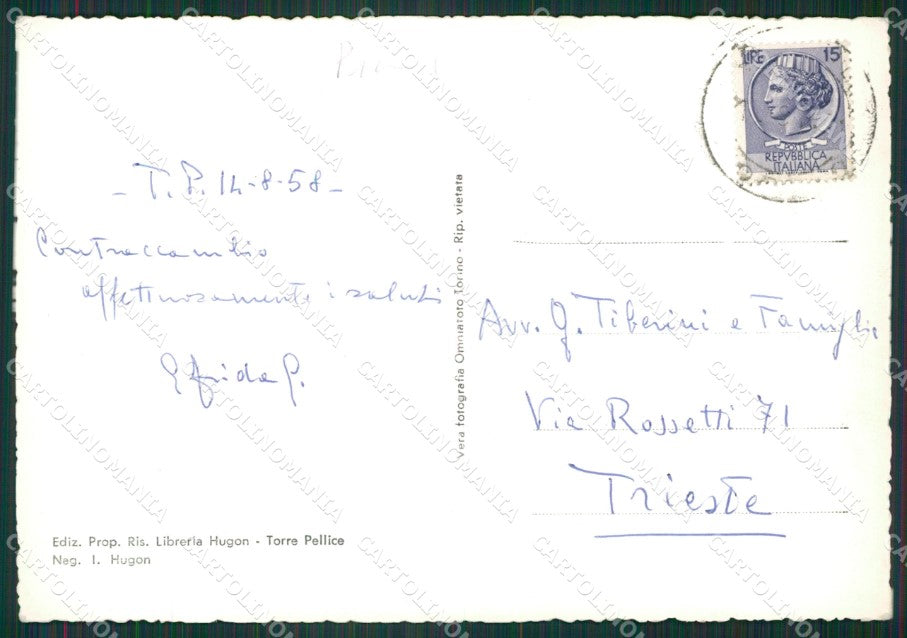 LIRE 15
POSTE
REPVBBLICA
ITALIANA
- T. P. 14-8-58 -
Contraccambio
affettuosamente i saluti
Frida G.
Vera fotografia Omniafoto Torino - Rip. vietata
Avv. G. Tiberini e Famiglia
Via Rossetti 71
Trieste
Ediz. Prop. Ris. Libreria Hugon - Torre Pellice
Neg. I. Hugon
CARTOLINOMANIA